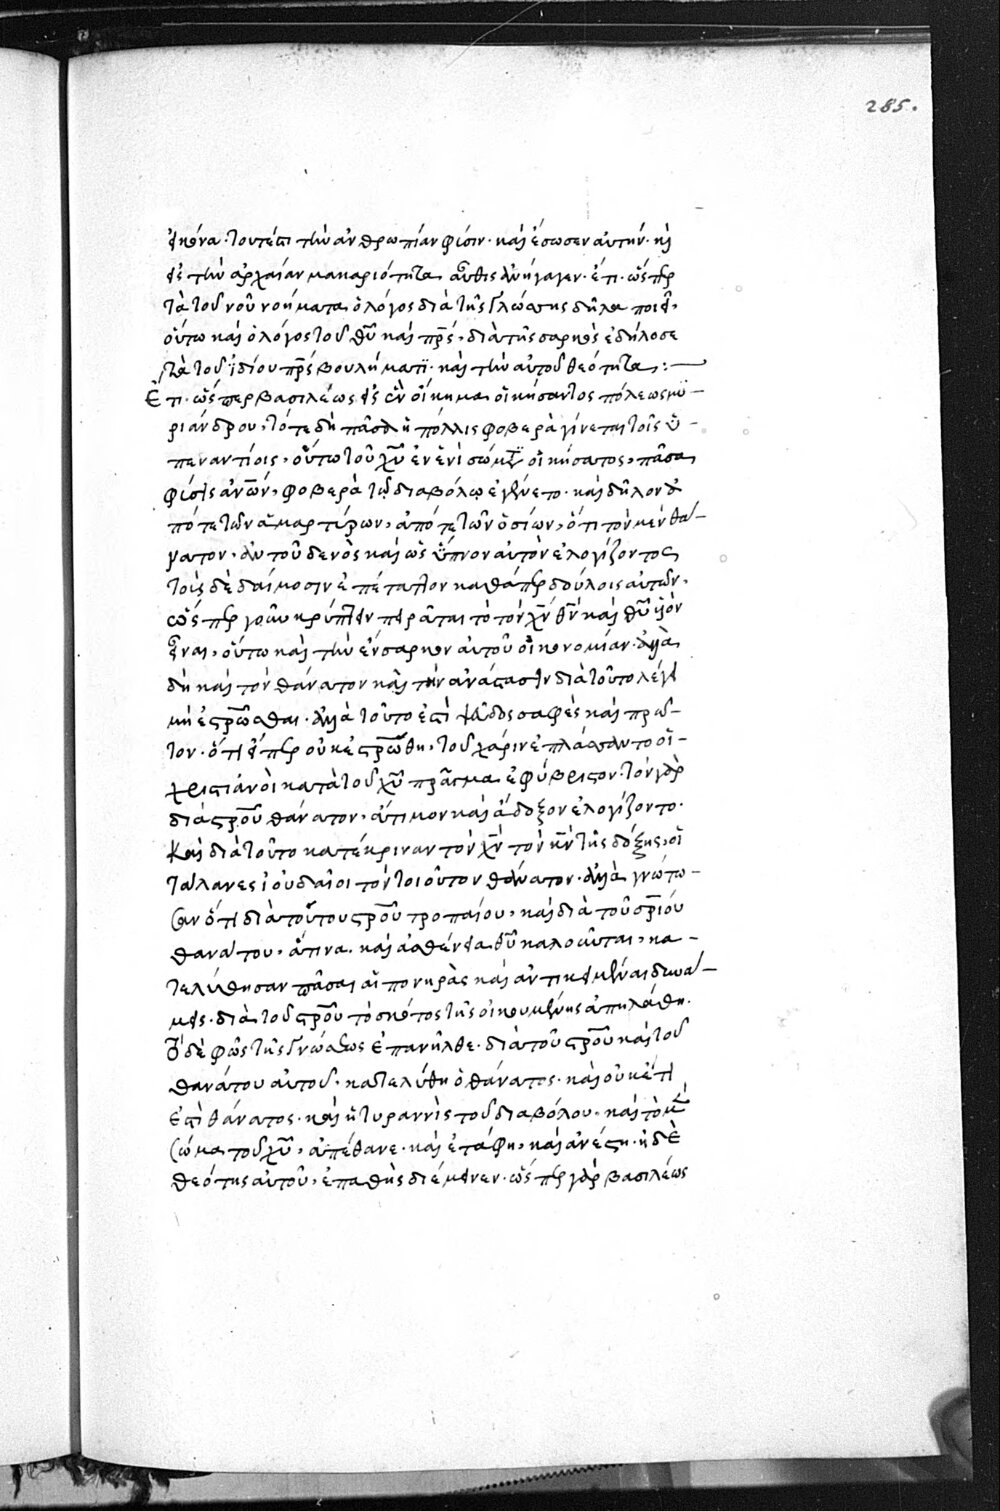 285.
εἰκόνα· τουτέστι τὴν ἀνθρωπίαν φύσιν· καὶ ἔσωσεν αὐτήν· κὶ
εἰς τὴν ἀρχαίαν μακαριότητα αὖθις ἀνήγαγεν· ἔτι· ὥσπερ
τὰ τοῦ νοῦ νοήματα ὁ λόγος διὰ τῆς γλώσσης δῆλα ποιεῖ,
οὕτω καὶ ὁ λόγος τοῦ θῦ καὶ πρς, διὰ τῆς σαρκὸς ἐδήλοσε
τὰ τοῦ ἰδίου πρς βουλήματϊ· καὶ τὴν αὐτοῦ θεότητα :
Ἔτι· ὥσπερ βασιλέως εἰς ἓν οἴκημα οἰκήσαντος πόλεως
ριάνδρου, τότε δὴ πᾶσα ἡ πόλλις φοβερὰ γίνεται τοῖς ὑ-
πεναντίοις, οὕτω τοῦ χῦ ἐν ἑνὶ σώματϊ οἰκήσατος, πᾶσα
φύσις ἀνων, φοβερὰ τῷ διαβόλῳ ἐγένετο· καὶ δῆλον ἀ
πό τε τῶν ἁμαρτύρων, ἀπό τε τῶν ὁσίων, ὅτι τὸν μὲν θά-
νατον, ἀντ' οὐδενὸς καὶ ὡς ὕπνον αὐτὸν ἐλογίζοντο
τοῖς δὲ δαίμοσιν ἐπέταττον καθάπερ δούλοις αὐτῶν,
ὥσπερ γοῦν κρύπτειν πειρᾶται τὸ τὸν χν θν καὶ θῦ υἱὸν
εἶναι, οὕτω καὶ τὴν ἔνσαρκον αὐτοῦ οἰκονομίαν· ἀλλὰ
δὴ καὶ τὸν θάνατον καὶ τὴν ἀνάστασιν διὰ τοῦτο λέγει
μὴ ἐσρῶσθαι· ἀλλὰ τοῦτο ἐστὶ ψεῦδος σαφὲς καὶ πρῶ-
τον· ὅτι εἴπερ οὐκ ἐσρώθη, τοῦ χάριν ἐπλάσαντο οἱ-
χριστιάνοὶ κατὰ τοῦ χῦ πρᾶγμα ἐφύβριστον· τὸν γὰρ
διὰ σροῦ θάνατον, ἄτιμον καὶ ἄδοξον ἐλογίζοντο·
Καὶ διὰ τοῦτο κατέκριναν τὸν χν τὸν κν τῆς δόξης, οἱ
τάλανες ἰουδαῖοι τὸν τοιοῦτον θάνατον· ἀλλὰ γνώτω-
σαν ὅτι διὰ τούτου σροῦ τροπαίου, καὶ διὰ τοῦ σρίου
θανάτου, ἅτινα καὶ ἀσθένεια θῦ καλοῦνται, κα-
τελύθησαν πᾶσαι αἱ πονηρὰς καὶ ἀντικείμεναι δυνά-
μεις· διὰ τοῦ σροῦ τὸ σκότος τῆς οἰκουμένης ἀπηλάθη·
τὸ δὲ φῶς τῆς γνώσεως ἐπανῆλθε· διὰ τοῦ σροῦ καὶ τοῦ
θανάτου αὐτοῦ, κατελύθη ὁ θάνατος· καὶ οὐκέτι
ἐστὶ θάνατος· καὶ ἡ τυραννὶς τοῦ διαβόλου, καὶ τὸ μὲν
σῶμα τοῦ χῦ, ἀπέθανε· καὶ ἐτάφη, καὶ ἀνέστη· ἡ δὲ
θεότης αὐτοῦ, ἐπαθὴς διέμεινεν· ὥσπερ γὰρ βασιλέως